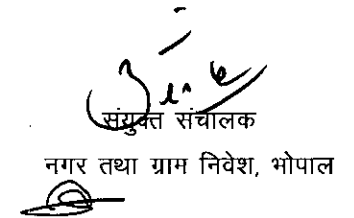 संयुक्त संचालक
नगर तथा ग्राम निवेश, भोपाल